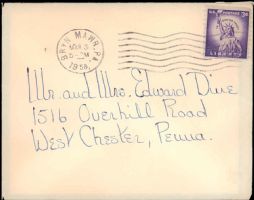 BRYN MAWR, PA.
1958
U.S. POSTAGE 3¢
LIBERTY
Mr. and Mrs. Edward Dine
1516 Overhill Road
West Chester, Penna.